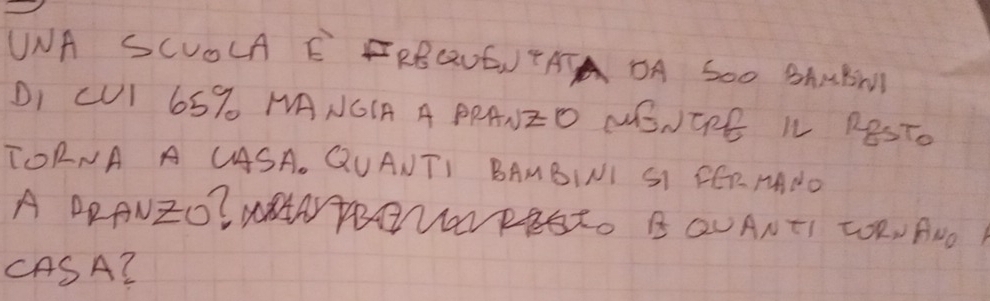 UNA SCUOLA È FREQUENTATA DA 500 BAMBINI
DI CUI 65% MANGIA A PRANZO MENTRE IL RESTO
TORNA A CASA. QUANTI BAMBINI SI FERMANO
A PRANZO? E QUANTI TORNANO A
CASA?